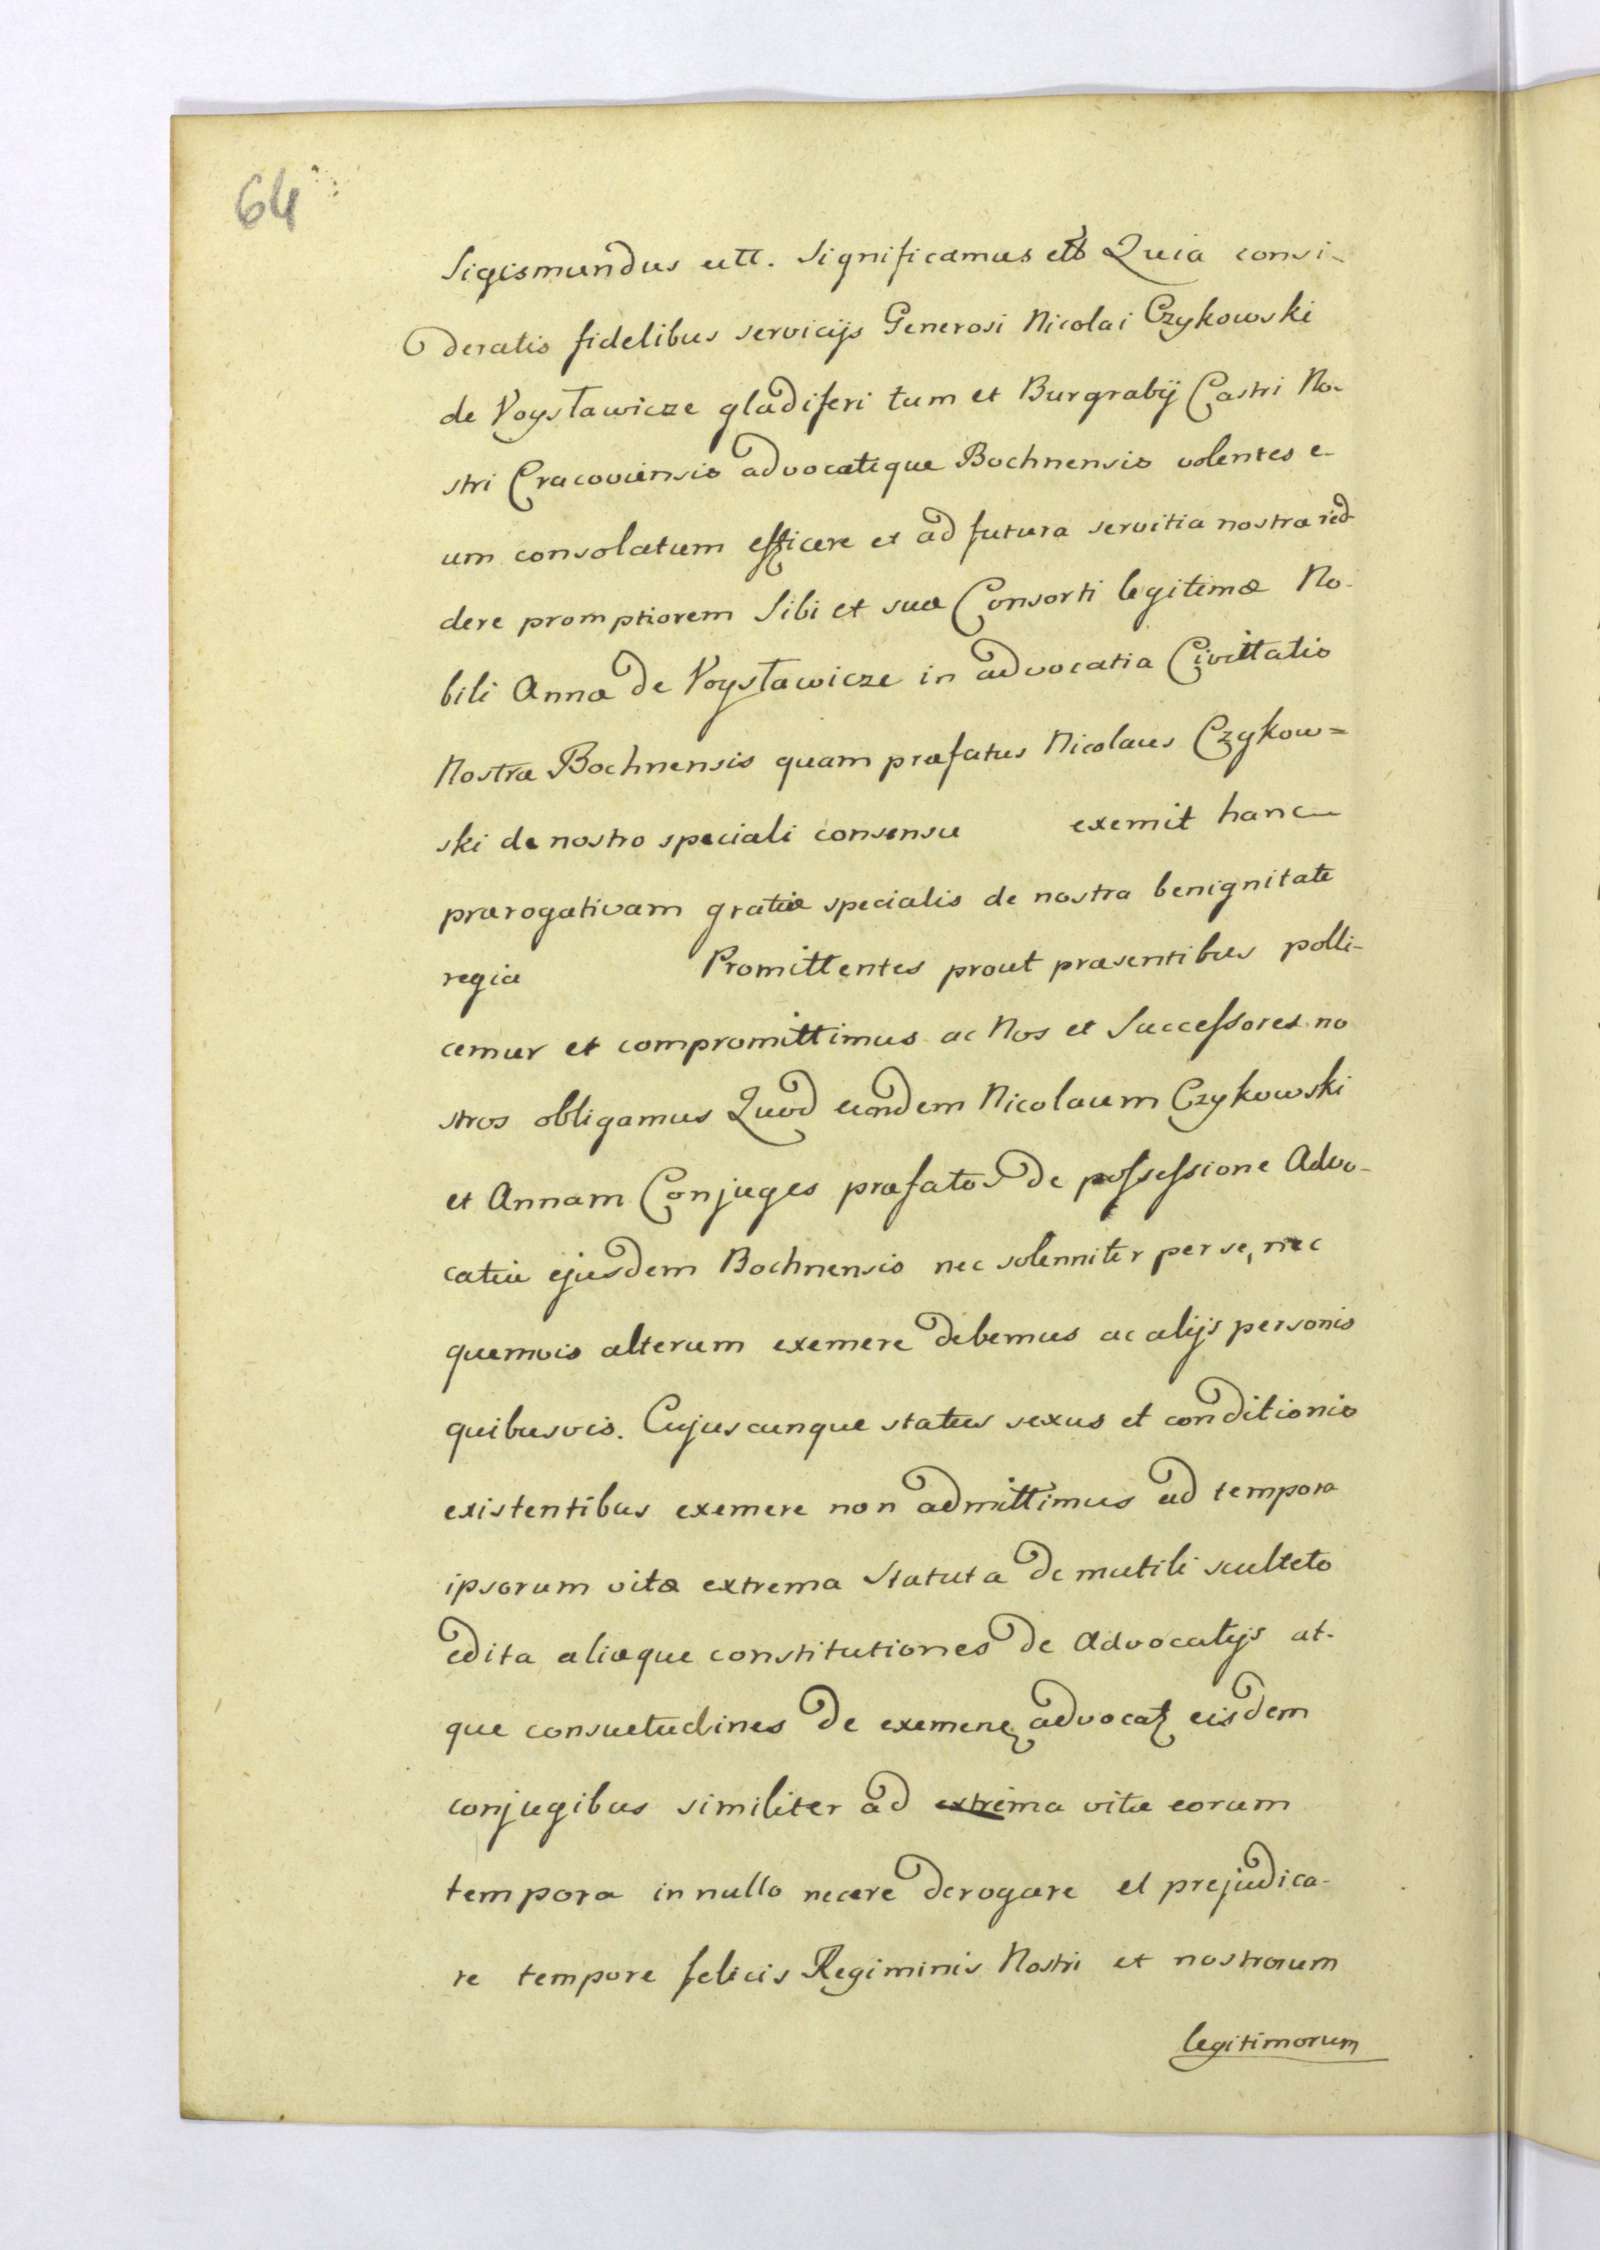 64
Sigismundus utt. Significamus ettb Quia consi-
deratis fidelibus servicijs Generosi Nicolai Czykowski
de Voysławicze gladiferi tum et Burgrabij Castri No-
stri Cracoviensis advocatique Bochnensis volentes e-
um consolatum efficere et ad futura servitia nostra red-
dere promptiorem Sibi et suæ Consorti legitimæ No-
bili Annæ de Voysławicze in advocatia Civittatis
Nostræ Bochnensis quam præfatus Nicolaus Czykow=
ski de nostro speciali consensu exemit hanc
prærogativam gratiæ specialis de nostra benignitate
regia Promittentes prout præsentibus polli-
cemur et compromittimus ac Nos et Successores no
stros obligamus Quod eundem Nicolaum Czykowski
et Annam Conjuges præfatos de possessione Advo-
catiæ ejusdem Bochnensis nec solenniter per se, nec
quemvis alterum exemere debemus ac alijs personis
quibusvis. Cujuscunque status sexus et conditionis
existentibus exemere non admittimus ad tempora
ipsorum vitæ extrema Statuta de mutili sculteto
edita aliæque constitutiones de Advocatijs at-
que consuetudines de exemene advocat eisdem
conjugibus similiter ad extrema vitæ eorum
tempora in nullo necere derogare et prejudica-
re tempore felicis Regiminis Nostri et nostrorum
legitimorum